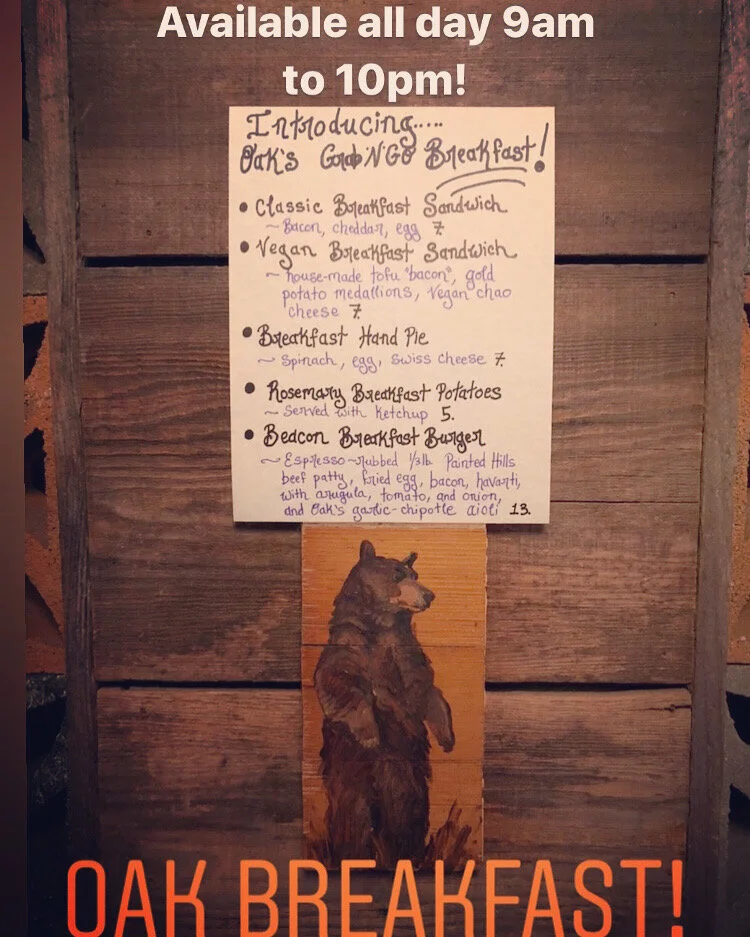 Available all day 9am
to 10pm!
Introducing....
Oak's Grab'N'Go Breakfast!
• Classic Breakfast Sandwich
~ Bacon, cheddar, egg 7.
• Vegan Breakfast Sandwich
~ house-made tofu "bacon", gold
potato medallions, Vegan chao
cheese 7.
• Breakfast Hand Pie
~ Spinach, egg, Swiss cheese 7.
• Rosemary Breakfast Potatoes
~ Served with Ketchup 5.
• Beacon Breakfast Burger
~ Espresso-rubbed 1/3lb. Painted Hills
beef patty, fried egg, bacon, havarti,
with arugula, tomato, and onion,
and Oak's garlic-chipotle aioli 13.
OAK BREAKFAST!